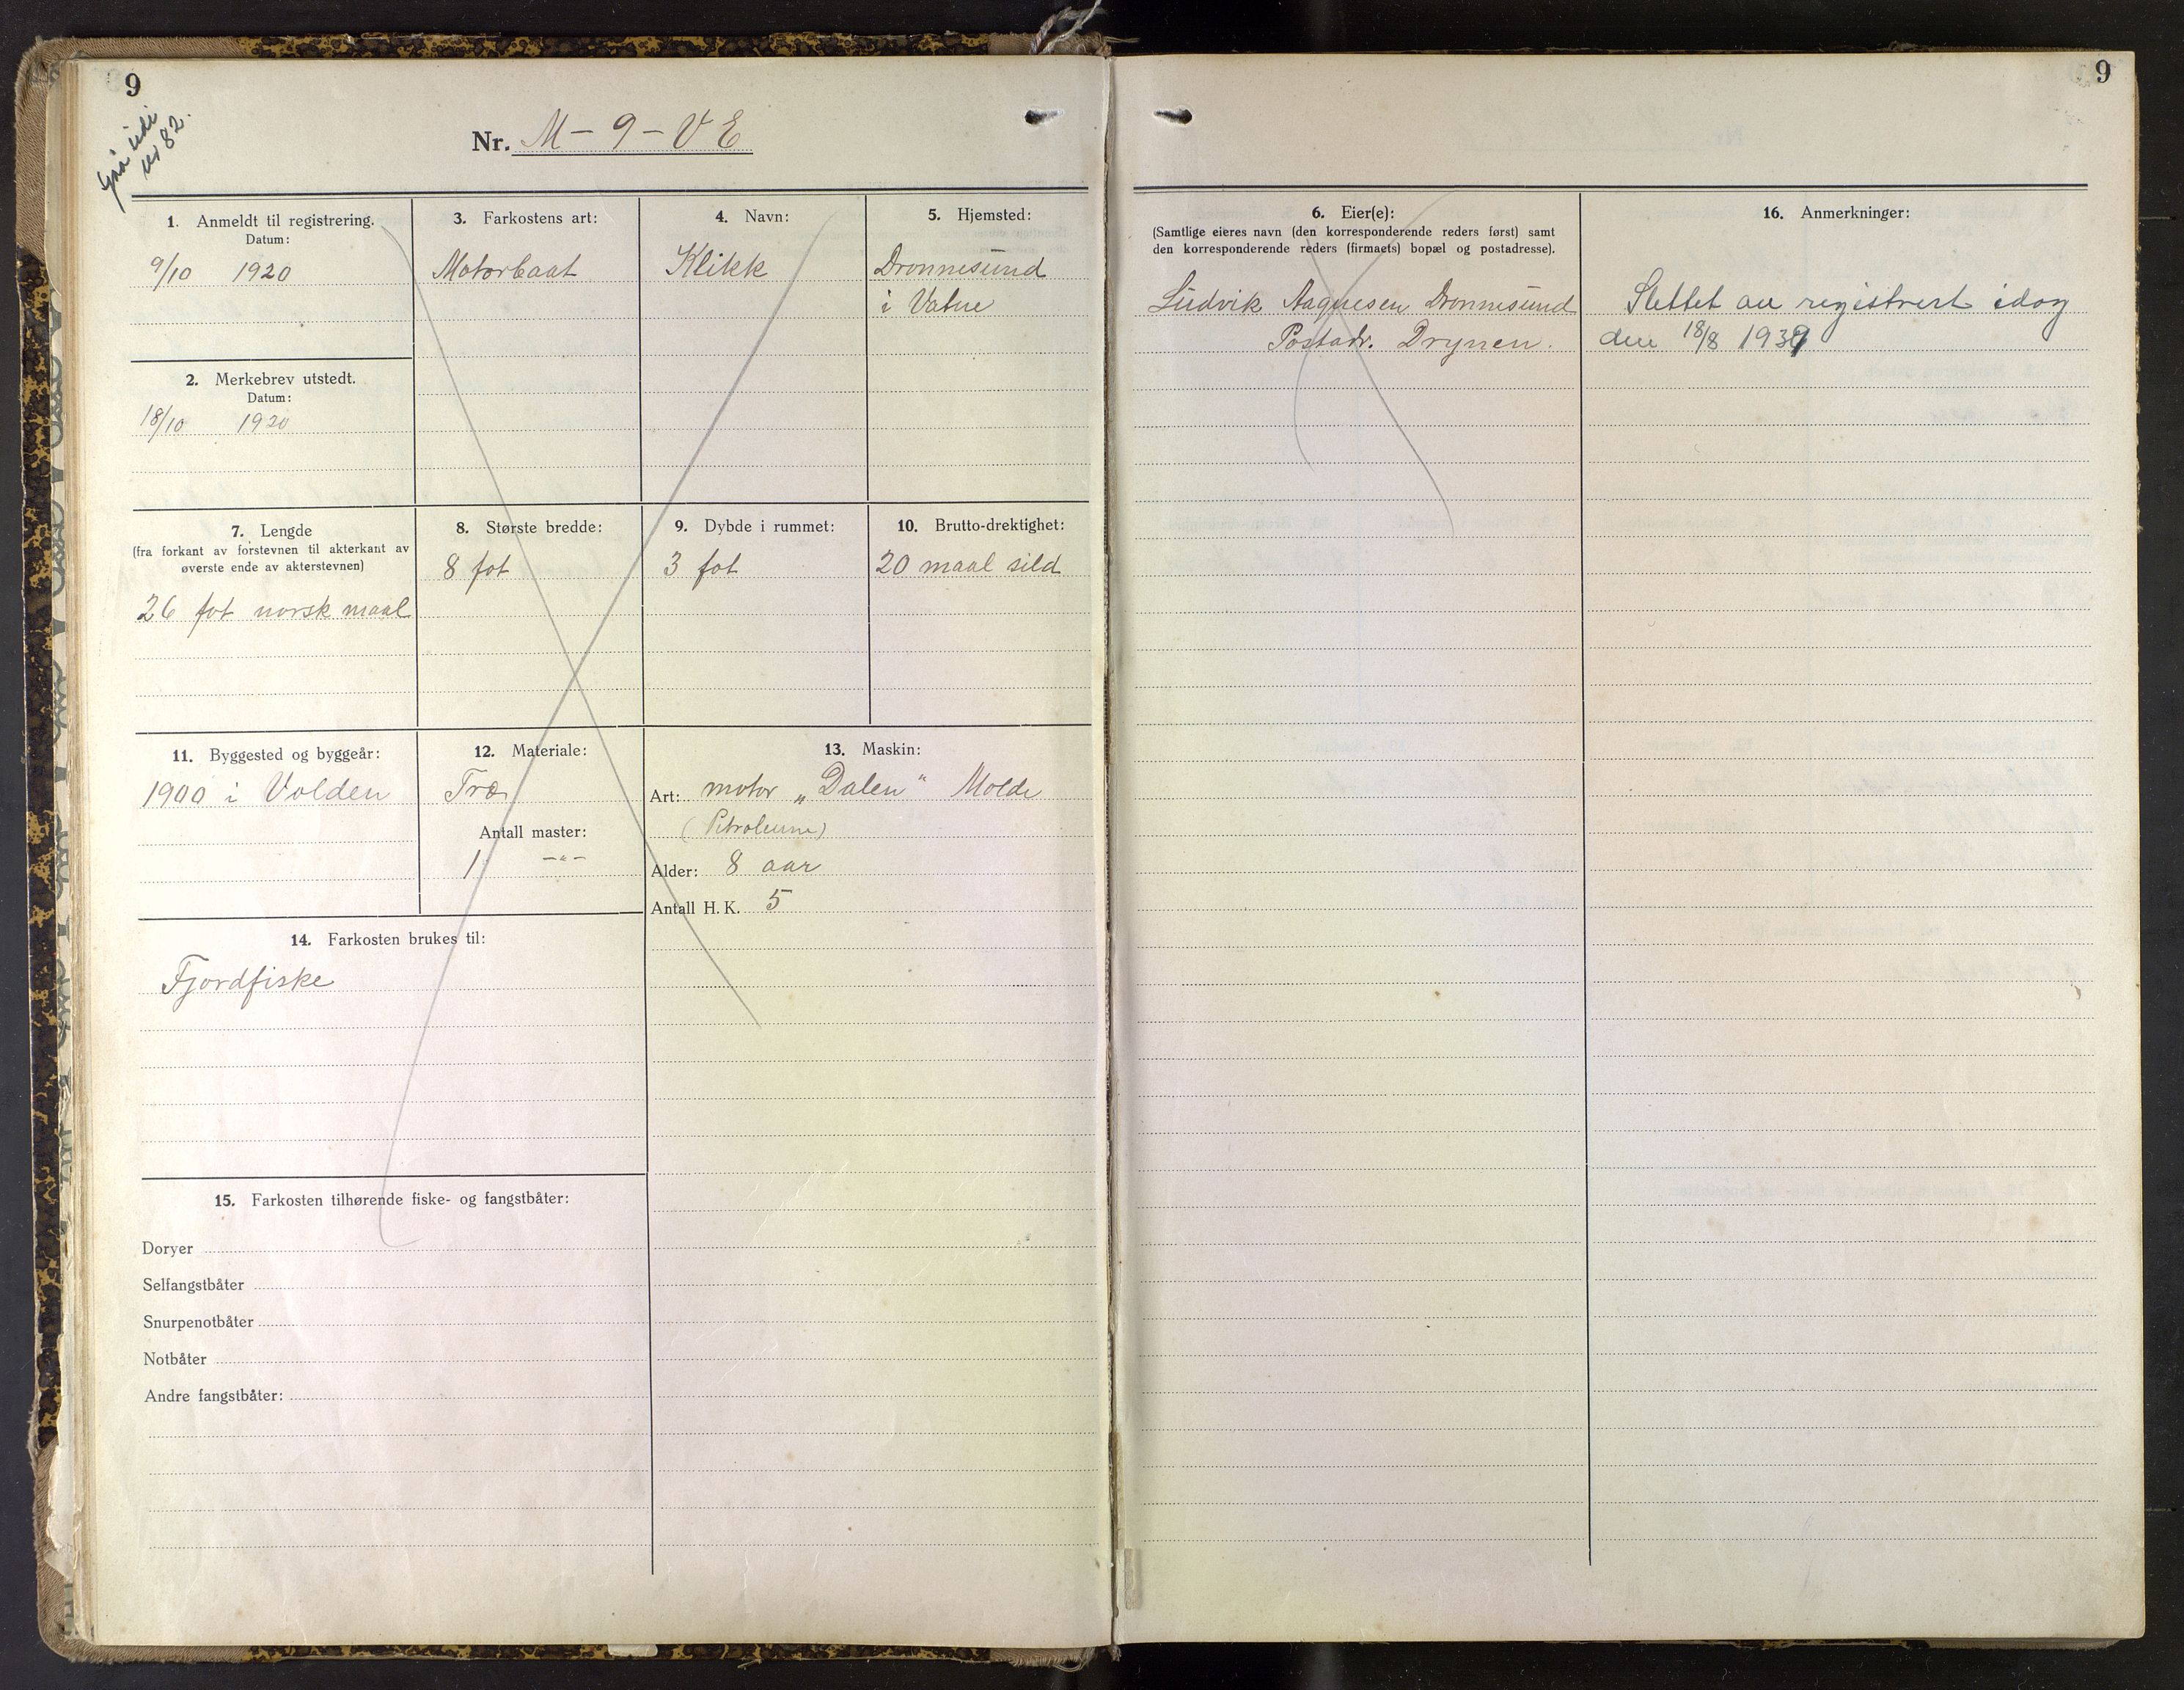 9
nr 82.
Nr. M-9-VE
1. Anmeldt til registrering.
Datum:
9/10 1920
2. Merkebrev utstedt.
Datum:
18/10 1920
3. Farkostens art:
Motorbaat
4. Navn:
Klikk
5. Hjemsted:
Dronnesund
i Vatne
7. Lengde
(fra forkant av forstevnen til akterkant av
øverste ende av akterstevnen)
26 fot norsk maal
8. Største bredde:
8 fot
9. Dybde i rummet:
3 fot
10. Brutto-drektighet:
20 maal sild
11. Byggested og byggeår:
1900 i Volden
12. Materiale:
Træ
Antall master:
1 -"-
13. Maskin:
Art: motor „Dalen" Molde
(Petroleum)
Alder: 8 aar
Antall H.K. 5
14. Farkosten brukes til:
Fjordfiske
15. Farkosten tilhørende fiske- og fangstbåter:
Doryer
Selfangstbåter
Snurpenotbåter
Notbåter
Andre fangstbåter:
9
6. Eier(e):
(Samtlige eieres navn (den korresponderende reders først) samt
den korresponderende reders (firmaets) bopæl og postadresse).
Ludvik Aagnesen Dronnesund
Postadr. Drynen.
16. Anmerkninger:
Slettet au registrert idag
den 18/8 1939